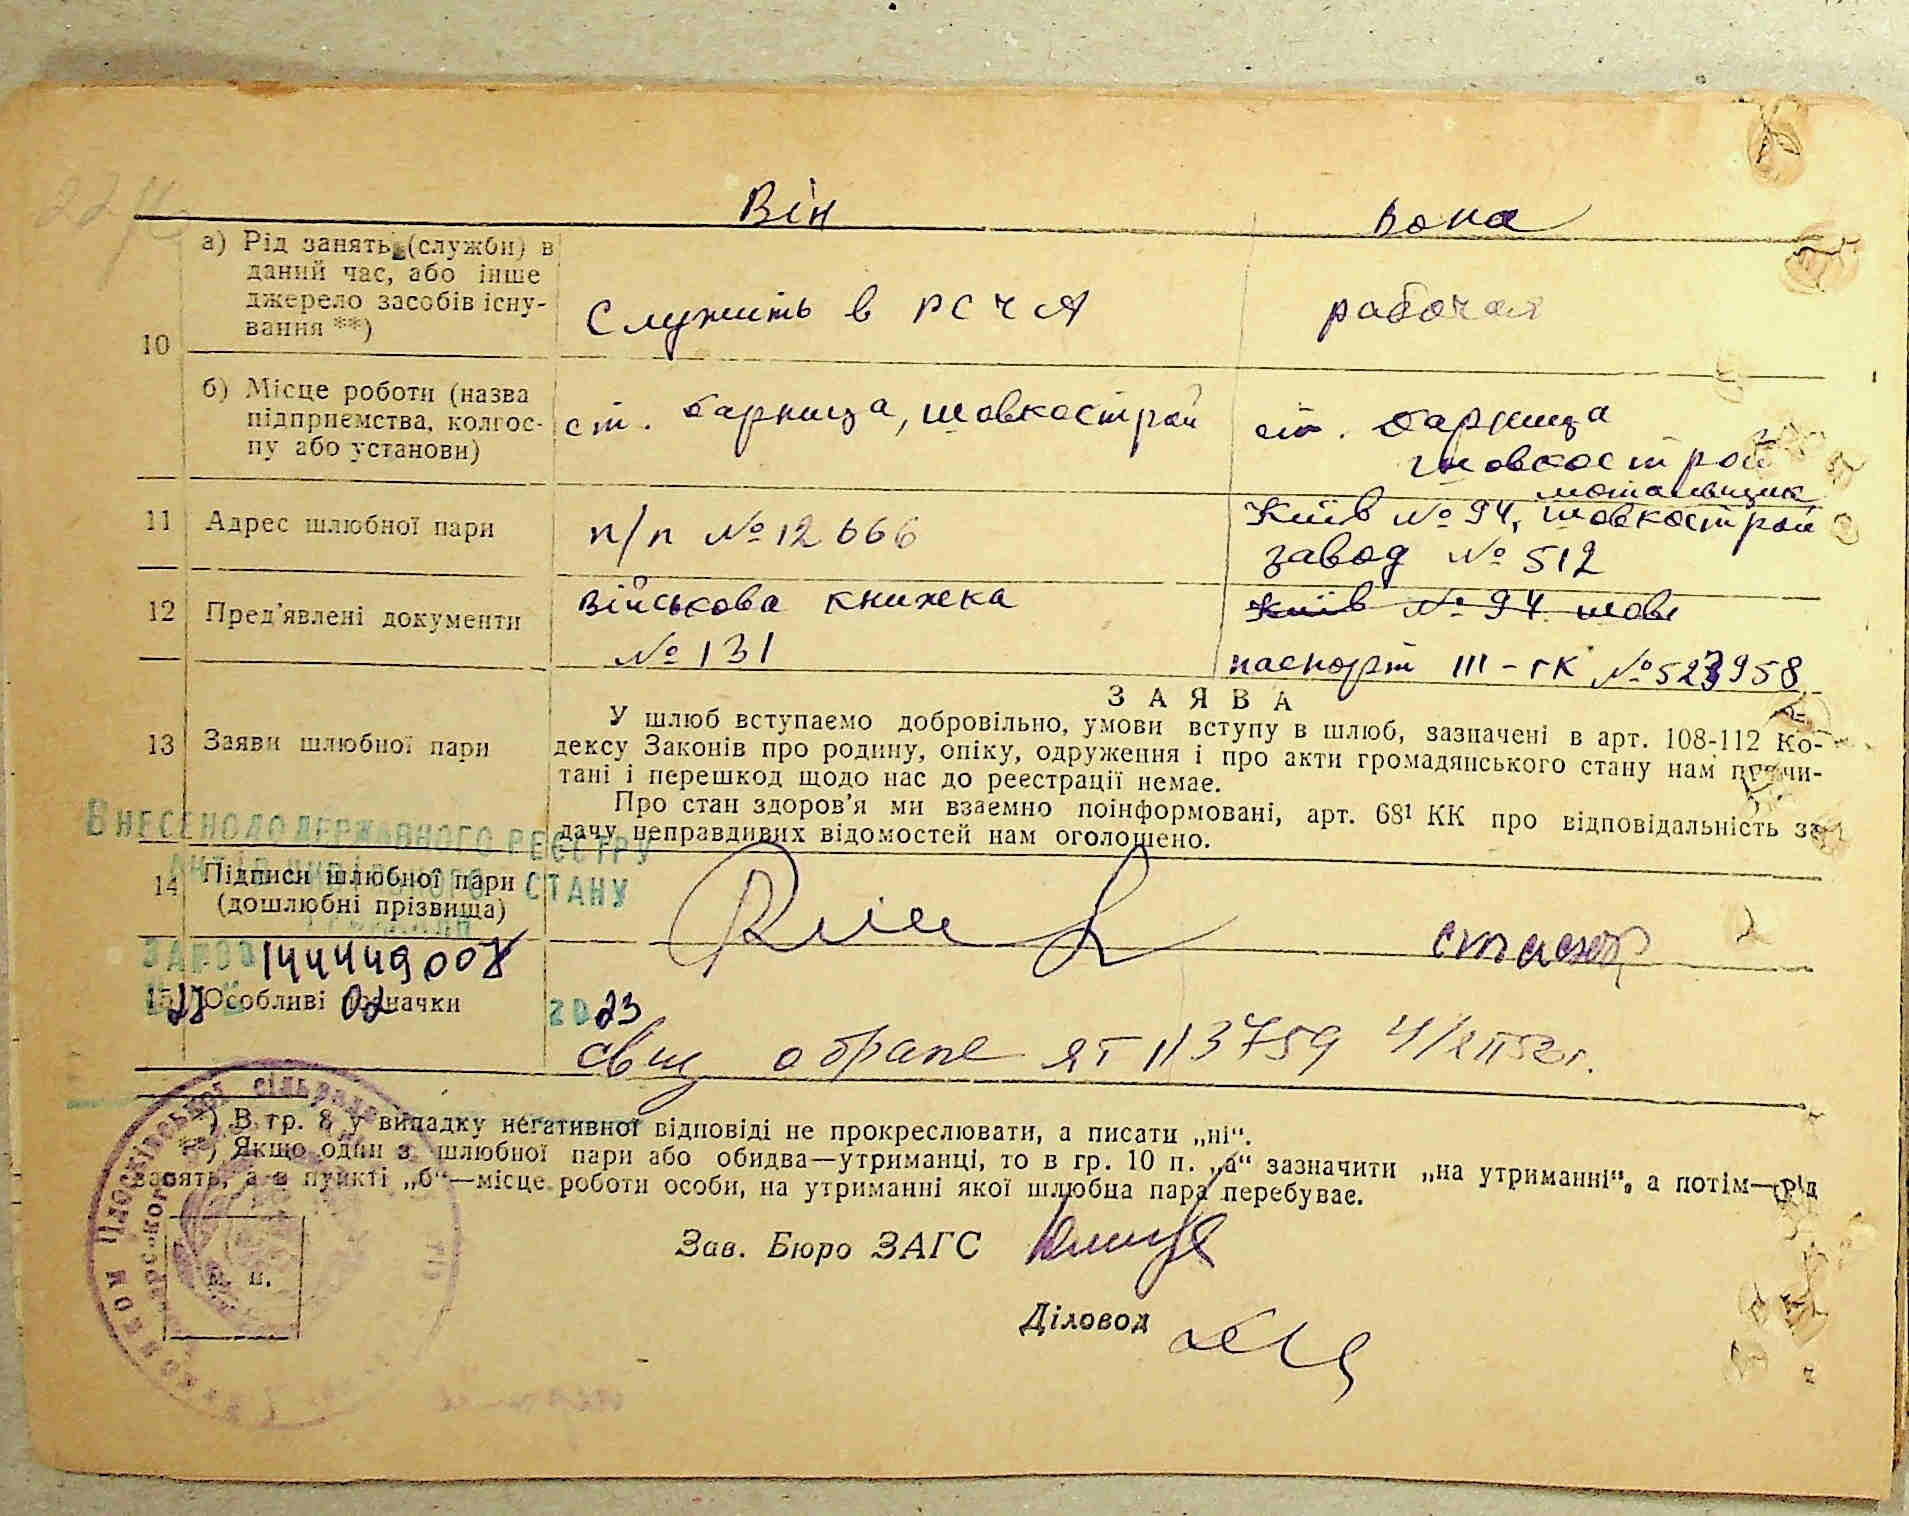 Він Вона
10
а) Рід занять (служби) в
даний час, або інше
джерело засобів існу-
вання **)
Служить в РСЧА
рабочая
б) Місце роботи (назва
підприємства, колгос-
пу або установи)
ст. Дарниця, шовкострой
ст. Дарниця
шовкострой
мотальщик
11 Адрес шлюбної пари
п/п № 12666
Київ № 94, шовкострой
завод № 512
12 Пред'явлені документи
Військова книжка
№ 131
Київ № 94 шовк
паспорт III - ГК № 523958
ЗАЯВА
13 Заяви шлюбної пари
У шлюб вступаємо добровільно, умови вступу в шлюб, зазначені в арт. 108-112 Ко-
дексу Законів про родину, опіку, одруження і про акти громадянського стану нам прочи-
тані і перешкод щодо нас до реєстрації немає.
Про стан здоров'я ми взаємно поінформовані, арт. 68¹ КК про відповідальність за
дачу неправдивих відомостей нам оголошено.
ВНЕСЕНО ДО ДЕРЖАВНОГО РЕЄСТРУ
АКТІВ ЦИВІЛЬНОГО СТАНУ
ГРОМАДЯН
14 Підписи шлюбної пари
(дошлюбні прізвища)
15 Особливі позначки
02 2023
4/XII 52 г.
*) В гр. 8 у випадку негативної відповіді не прокреслювати, а писати „ні“.
**) Якщо один з шлюбної пари або обидва—утриманці, то в гр. 10 п. „а“ зазначити „на утриманні“, а потім—рід
занять, а в пункті „б“—місце роботи особи, на утриманні якої шлюбна пара перебуває.
Зав. Бюро ЗАГС
м. п.
Діловод